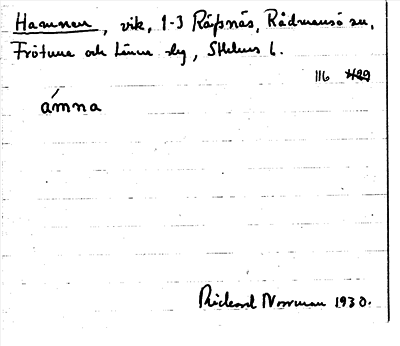 Hamnen, vik, 1-3 Räfsnäs, Rådmansö sn,
Frötuna och Länna slg, Sthlms l.
116 H29
ámna
Rickard Norrman 1930.